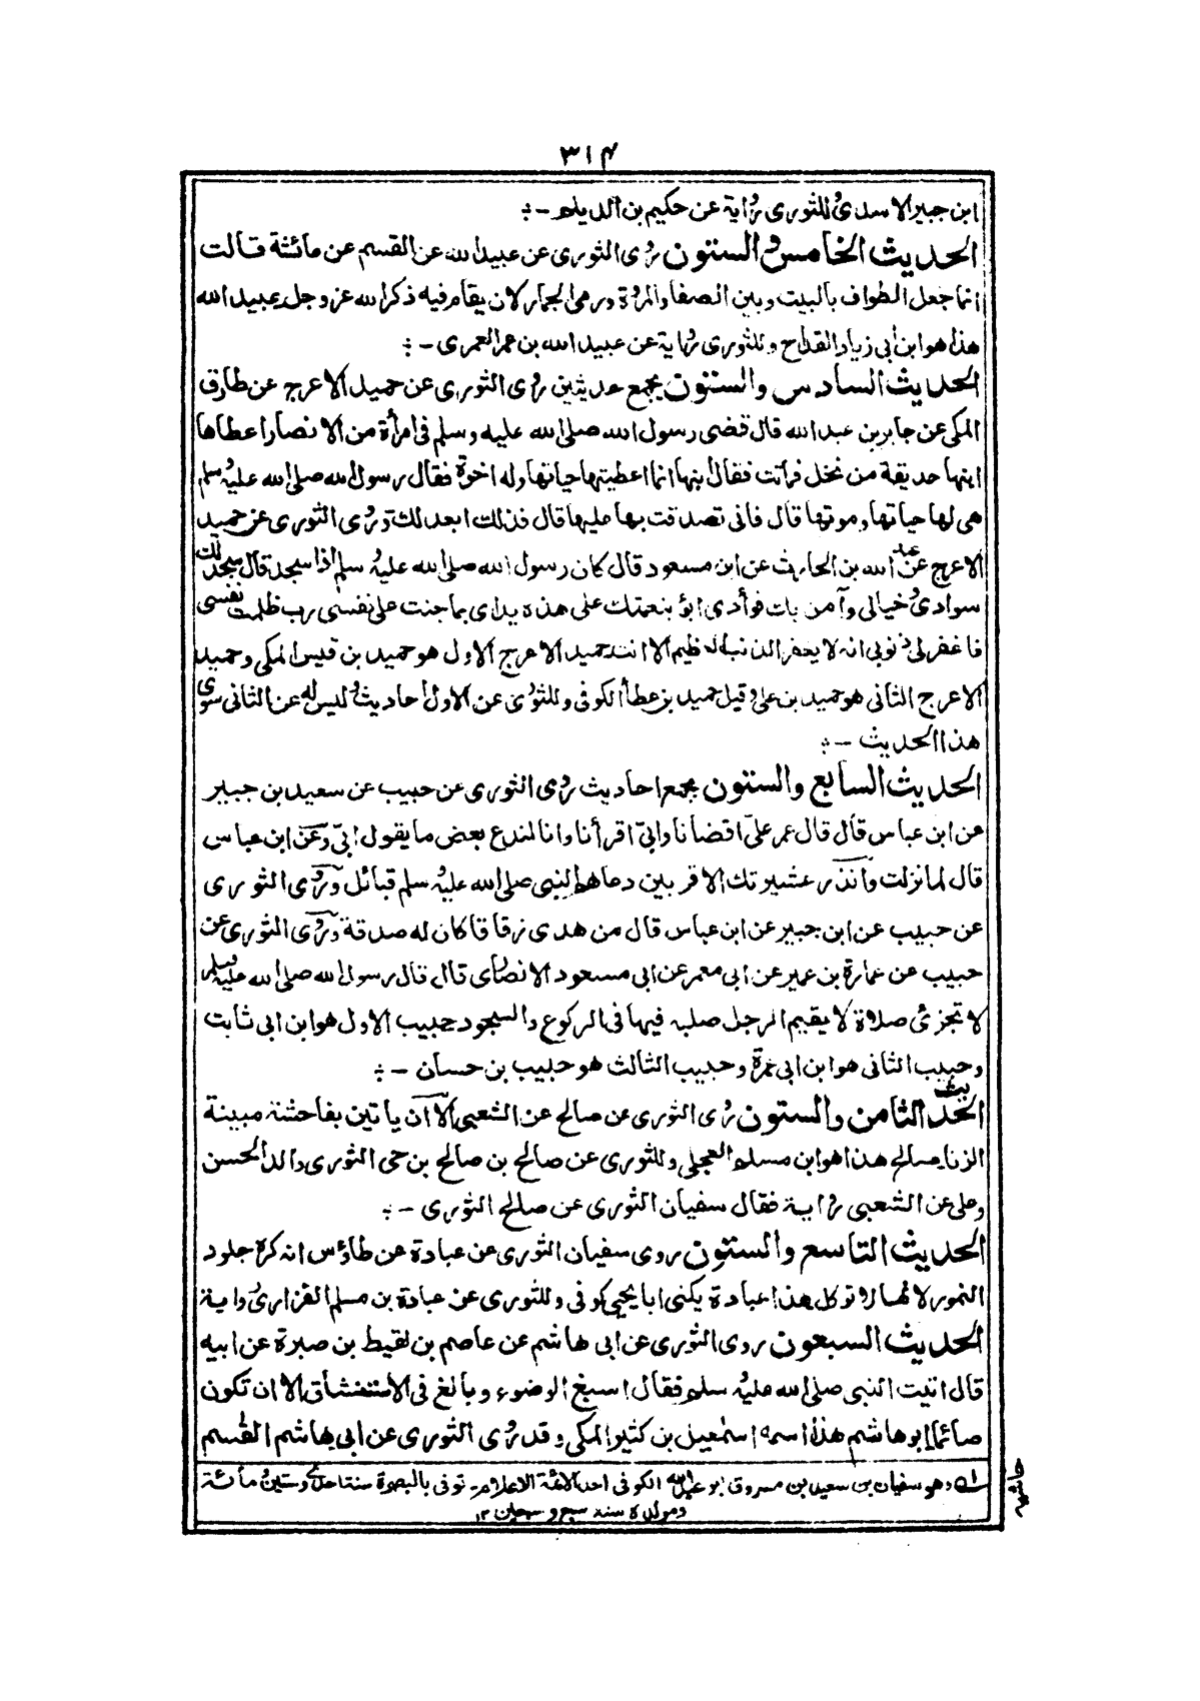 ۳۱۴
ابن جبير الاسدى وللثورى رواية عن حكيم بن الديلم ـ :
الحديث الخامس والستون روى الثورى عن عبيد الله عن القسم عن عائشة قالت
انما جعل الطواف بالبيت وبين الصفا والمروة ورمى الجمار لان يقام فيه ذكر الله عز وجل عبيد الله
هذا هو ابن أبى زياد القداح وللثورى رواية عن عبيد الله بن عمر العمرى ـ :
الحديث السادس والستون يجمع حديثين روى الثورى عن حميد الاعرج عن طارق
المكى عن جابر بن عبد الله قال قضى رسول الله صلى الله عليه وسلم فى امرأة من الانصار اعطاها
ابنها حديقة من نخل فماتت فقال ابنها انما اعطيتها حياتها وله اخوة فقال رسول الله صلى الله عليه وسلم
هى لها حياتها وموتها قال فانى تصدقت بها عليها قال فذلك ابعد لك وروى الثورى عن حميد
الاعرج عن عبد الله بن الحارث عن ابن مسعود قال كان رسول الله صلى الله عليه وسلم اذا سجد قال سجد لك
سوادى وخيالى وآمن بك فوأدى ابؤ بنعمتك على هذه يداى بما جنت على نفسى رب ظلمت نفسى
فاغفر لى ذنوبى انه لا يغفر الذنب العظيم الا انت حميد الاعرج الاول هو حميد بن قيس المكى وحميد
الاعرج الثانى هو حميد بن على وقيل حميد بن عطأ الكوفى وللثورى عن الاول احاديث وليس له عن الثانى سوى
هذا الحديث ـ :
الحديث السابع والستون يجمع احاديث روى الثورى عن حبيب عن سعيد بن جبير
عن ابن عباس قال قال عمر علىّ اقضانا وابىّ اقرأنا وانا لندع بعض ما يقول ابىّ وعن ابن عباس
قال لما نزلت وانذر عشيرتك الاقربين دعاهم النبى صلى الله عليه وسلم قبائل وروى الثورى
عن حبيب عن ابن جبير عن ابن عباس قال من هدى زقاقا كان له صدقة وروى الثورى عن
حبيب عن عمارة بن عمير عن ابى معمر عن ابى مسعود الانصارى قال قال رسول الله صلى الله عليه وسلم
لا تجزئ صلاة لا يقيم الرجل صلبه فيها فى الركوع والسجود حبيب الاول هو ابن ابى ثابت
وحبيب الثانى هو ابن ابى عمرة وحبيب الثالث هو حبيب بن حسان ـ :
الحديث الثامن والستون روى الثورى عن صالح عن الشعبى الا ان ياتين بفاحشة مبينة
الزنا صالح هذا هو ابن مسلم العجلى وللثورى عن صالح بن صالح بن حى الثورى والد الحسن
وعلى عن الشعبى رواية فقال سفيان الثورى عن صالح الثورى ـ :
الحديث التاسع والستون روى سفيان الثورى عن عبادة عن طاؤس انه كره جلود
النمور لانها لا توكل هذا عبادة يكنى ابا يحيى كوفى وللثورى عن عبادة بن مسلم الفزارى رواية
الحديث السبعون روى الثورى عن ابى هاشم عن عاصم بن لقيط بن صبرة عن ابيه
قال اتيت النبى صلى الله عليه وسلم فقال اسبغ الوضوء وبالغ فى الاستنشاق الا ان تكون
صائما ابو هاشم هذا اسمه اسمٰعيل بن كثير المكى وقد روى الثورى عن ابى هاشم القٰسم
حاشيه
ـ۱ـه وهو سفيان بن سعيد بن مسروق ابو عبد الله الكوفى احد الائمة الاعلام ـ توفى بالبصرة سنة احدى وستين ومأئة
ومولده سنة سبع وسبعين ۱۲